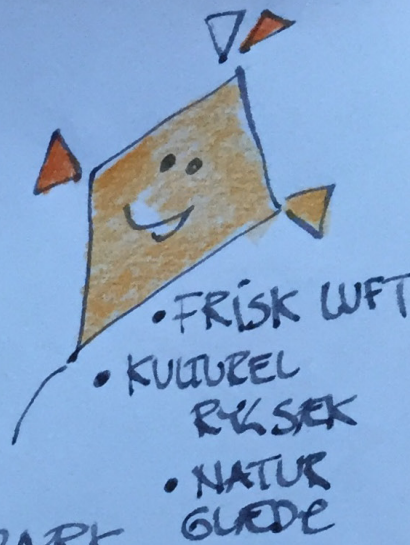 • FRISK LUFT
• KULTUREL
RYGSÆK
• NATUR
GLÆDE